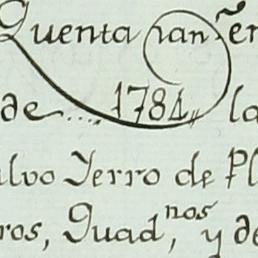 Quenta
de.... 1784,, la
alvo Yerro de Pl
ros, Quad,nos y de